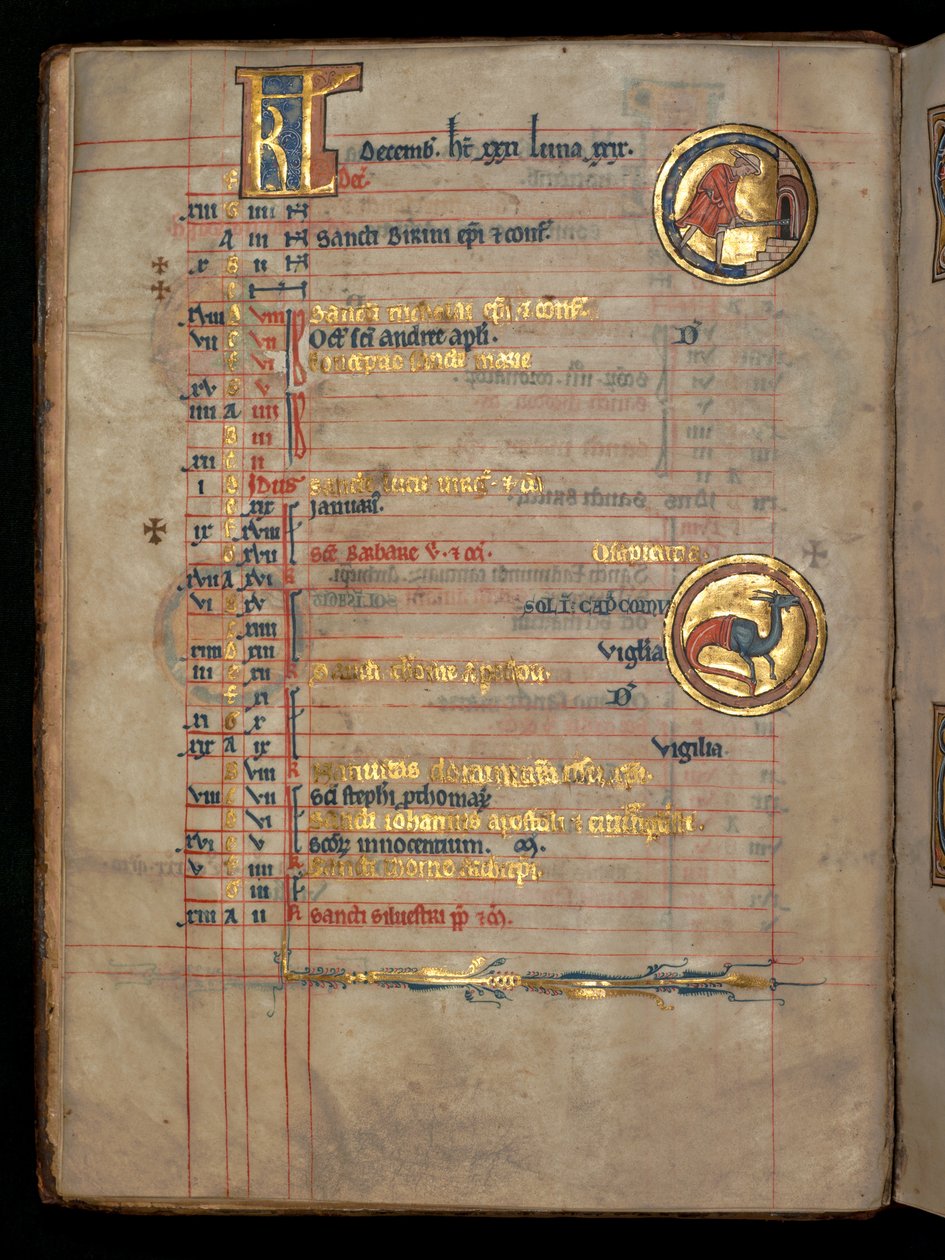 KL Decemb. ht xxxi luna xxix.
f Dec.
xiii G iiii N
A iii N Sancti Birini epi ⁊ conf.
x B ii N
C
xviii D viii Sancti nicholai epi ⁊ conf.
vii E vii Oct sci andree apli. D
f vi Conceptio sancte marie
xv G v
iiii A iiii
B iii
xii C ii
i D Idus Sancte lucie virg.
E xix Januarii.
ix f xviii
G xvii Sce Barbare v. Osapientia.
xvii A xvi
vi B xv SOL I: CAPCORNV
C xiiii
xiiii D xiii Vigilia
iii E xii Sancti thome Apostoli.
f xi D
xi G x
xix A ix Vigilia.
B viii Nativitas domini
viii C vii Sci stephi
D vi Sancti iohannis apostoli ⁊
xvi E v Scorum innocentium.
v f iiii Sancti thome archiepi.
G iii
xiii A ii Sancti silvestri pp